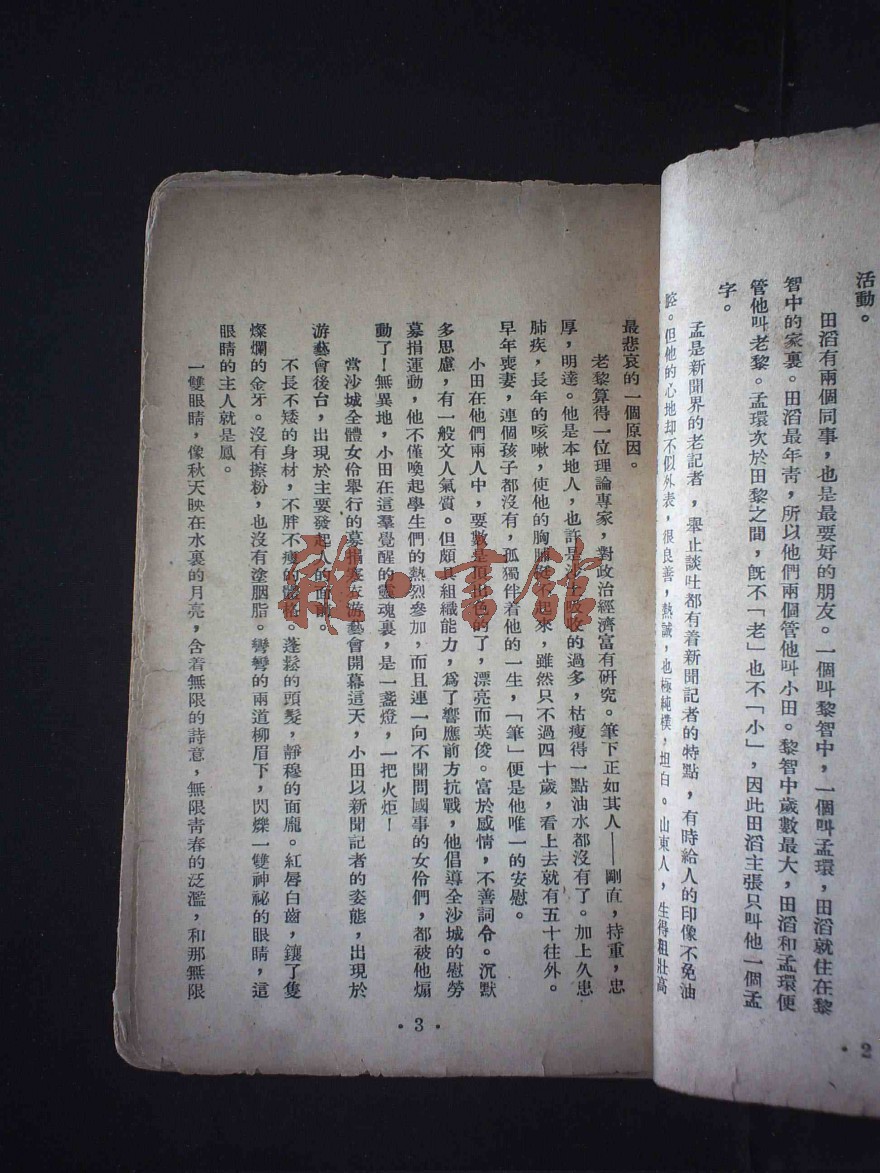 活動。
田滔有兩個同事，也是最要好的朋友。一個叫黎智中，一個叫孟環，田滔就住在黎
智中的家裏。田滔最年靑，所以他們兩個管他叫小田。黎智中歲數最大，田滔和孟環便
管他叫老黎。孟環次於田黎之間，旣不「老」也不「小」，因此田滔主張只叫他一個孟
字。
孟是新聞界的老記者，舉止談吐都有着新聞記者的特點，有時給人的印像不免油
腔。但他的心地却不似外表，很良善，熱誠，也極純樸，坦白。山東人，生得粗壯高
2
最悲哀的一個原因。
老黎算得一位理論專家，對政治經濟富有硏究。筆下正如其人——剛直，持重，忠
厚，明達。他是本地人，也許是沙土吸收的過多，枯瘦得一點油水都沒有了。加上久患
肺疾，長年的咳嗽，使他的胸脯挺不起來，雖然只不過四十歲，看上去就有五十往外。
早年喪妻，連個孩子都沒有，孤獨伴着他的一生，「筆」便是他唯一的安慰。
小田在他們兩人中，要數是頂出色的了，漂亮而英俊。富於感情，不善詞令。沉默
多思慮，有一般文人氣質。但頗具組織能力，爲了響應前方抗戰，他倡導全沙城的慰勞
募捐運動，他不僅喚起學生們的熱烈參加，而且連一向不聞問國事的女伶們，都被他煽
動了！無異地，小田在這羣覺醒的靈魂裏，是一盞燈，一把火炬！
當沙城全體女伶舉行的募捐寒衣游藝會開幕這天，小田以新聞記者的姿態，出現於
游藝會後台，出現於主要發起人的面前。
不長不矮的身材，不胖不瘦的體格。蓬鬆的頭髮，靜穆的面龐。紅唇白齒，鑲了隻
燦爛的金牙。沒有擦粉，也沒有塗胭脂。彎彎的兩道柳眉下，閃爍一雙神祕的眼睛，這
眼睛的主人就是鳳。
一雙眼睛，像秋天映在水裏的月亮，含着無限的詩意，無限靑春的泛濫，和那無限
3